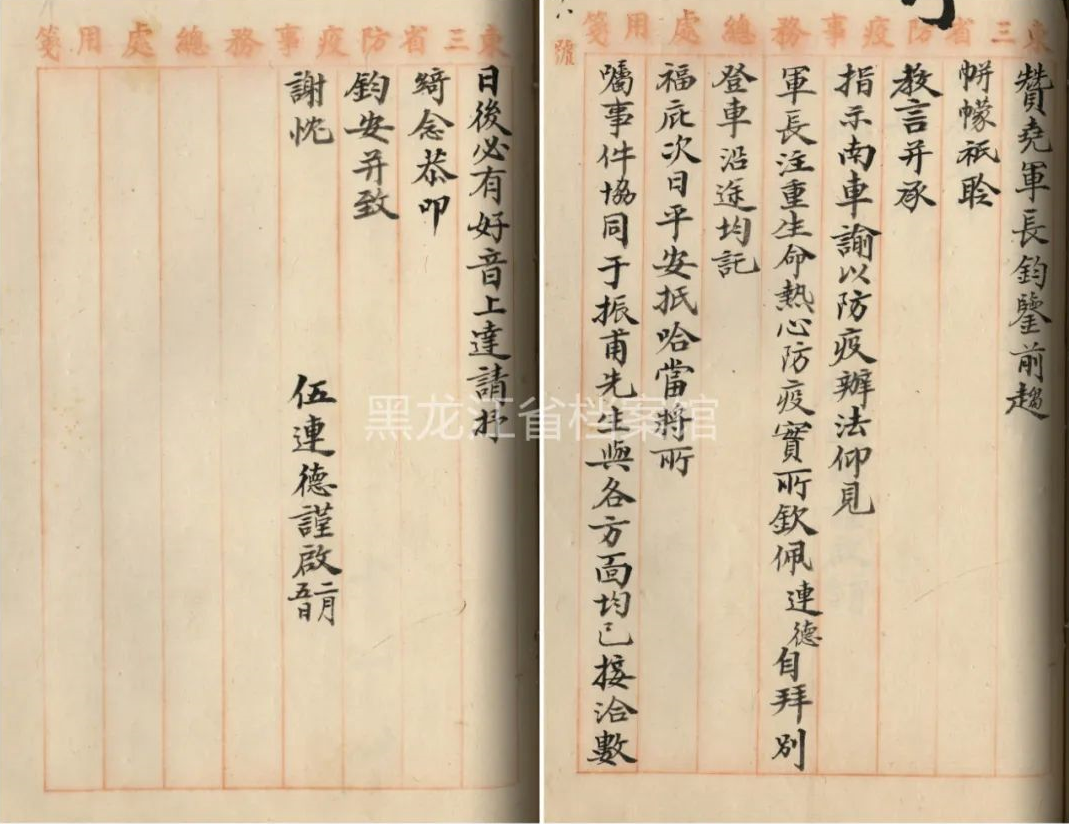 東三省防疫事務總處用箋
號
贊堯軍長鈞鑒前趨
帡幪祇聆
教言并承
指示南車諭以防疫辦法仰見
軍長注重生命熱心防疫實所欽佩連德自拜別
登車沿途均託
福庇次日平安抵哈當將所
囑事件協同于振甫先生與各方面均已接洽數
東三省防疫事務總處用箋
日後必有好音上達請抒
綺念恭叩
鈞安并致
謝忱
伍連德謹啟二月五日
黑龙江省档案馆